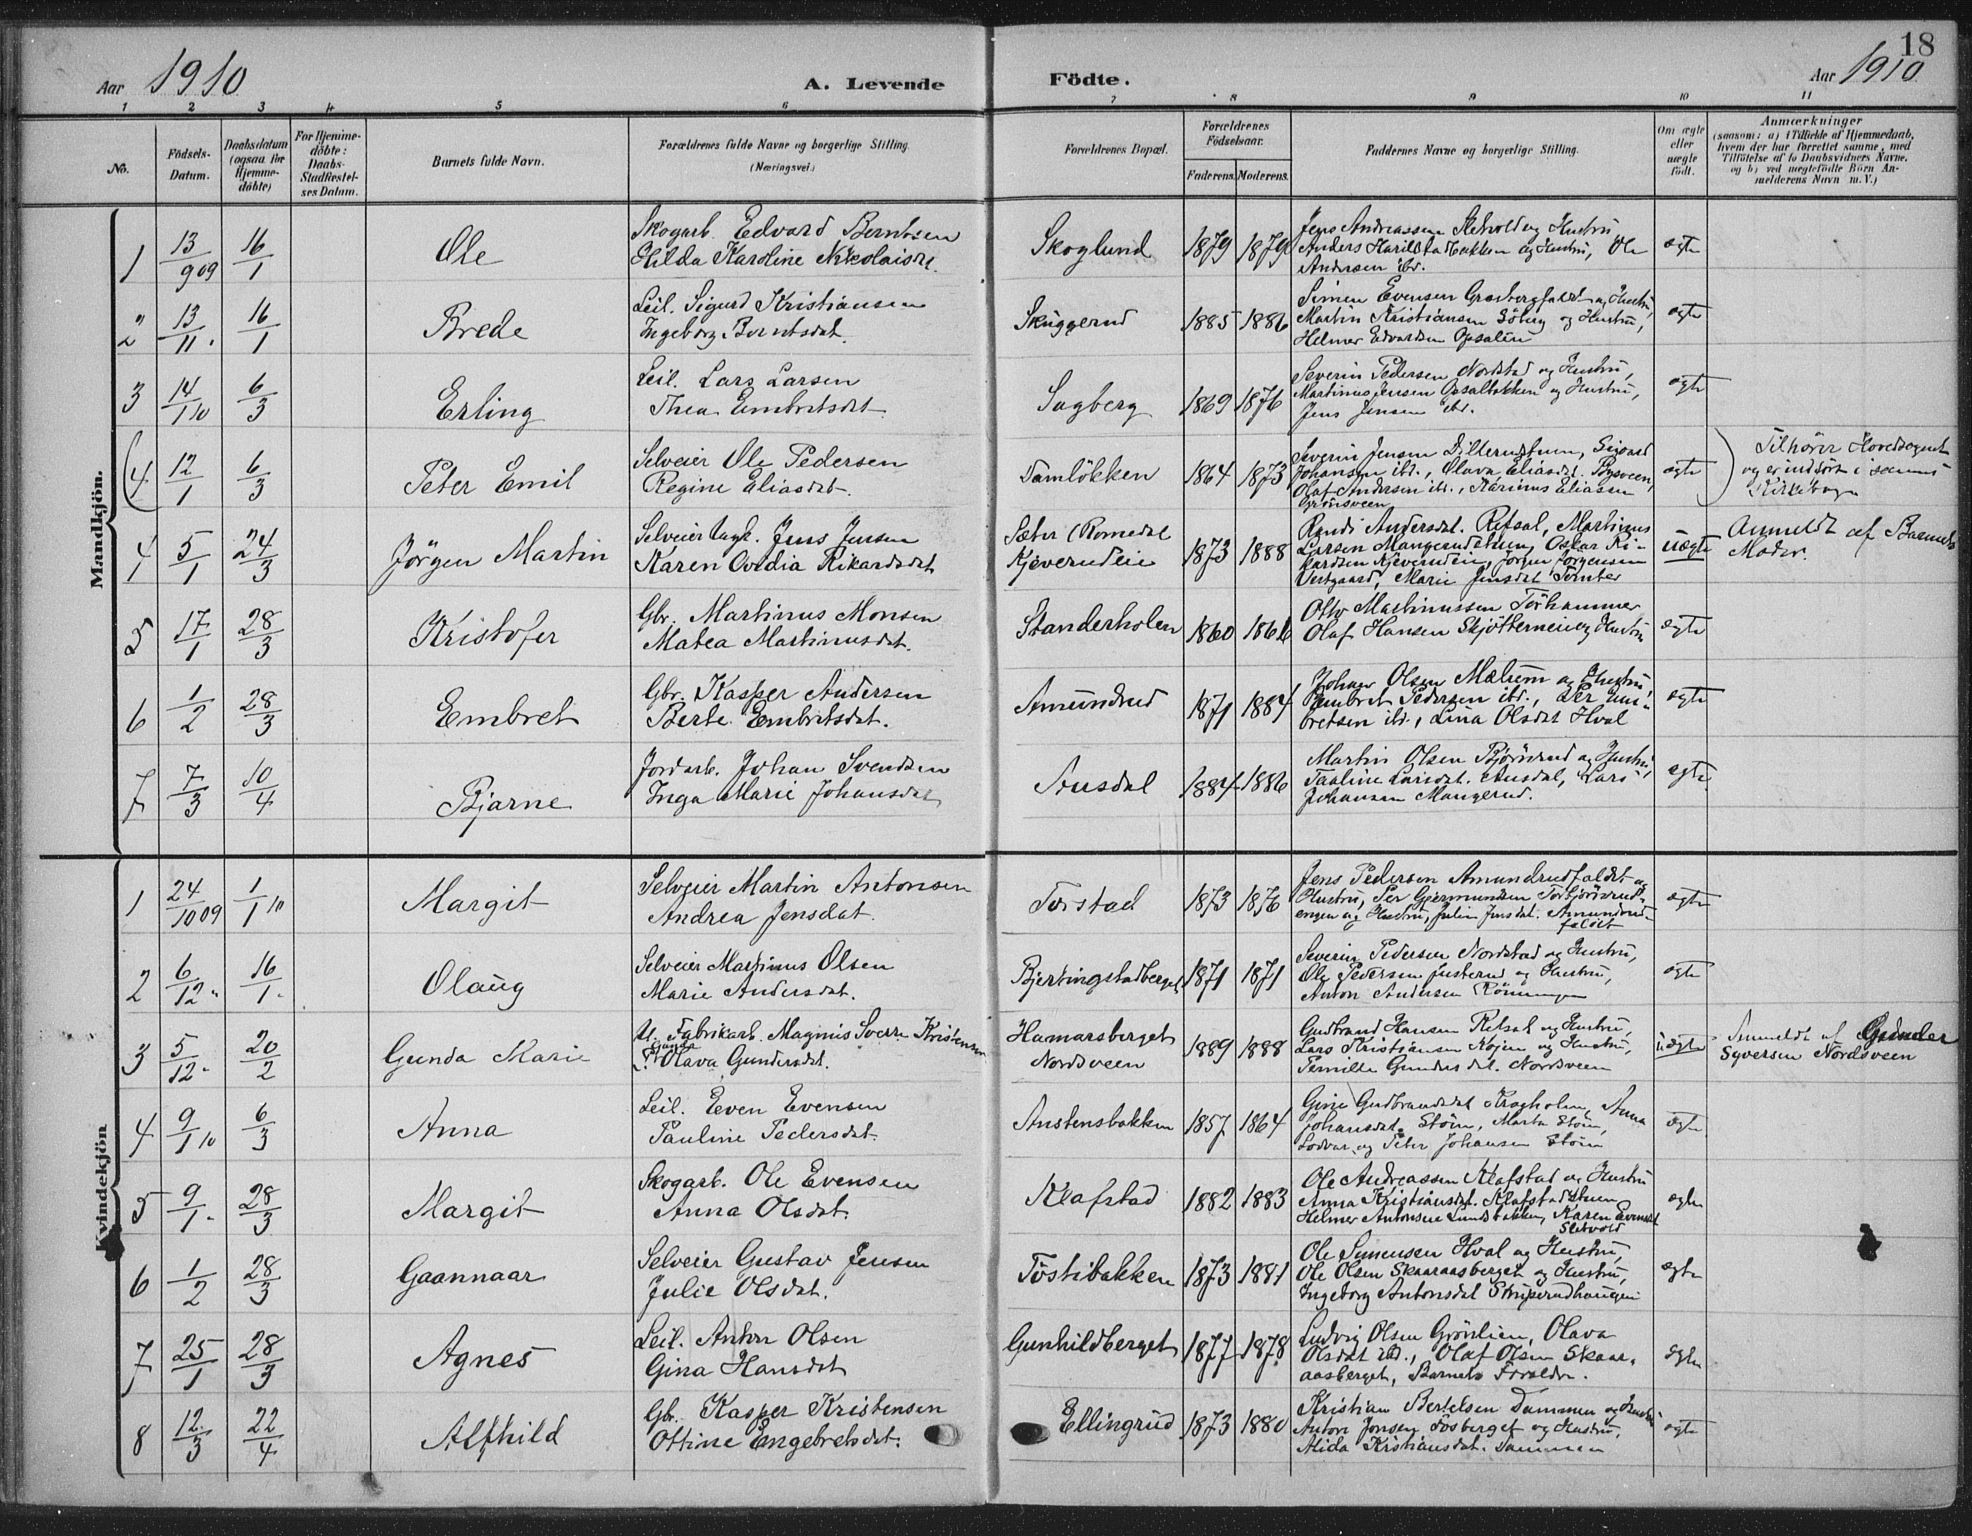 18
Aar 1910 A. Levende Födte. Aar 1910
1 2 3 4 5 6 7 8 9 10 11
No.
Födsels-Datum.
Daabsdatum (ogsaa for Hjemme-döbte)
For Hjemme-döbte: Daabs-Stadfæstel-ses Datum.
Barnets fulde Navn.
Forældrenes fulde Navne og borgerlige Stilling. (Næringsvei.)
Forældrenes Bopæl.
Forældrenes Födselsaar.
Faderens. Moderens.
Faddernes Navne og borgerlige Stilling.
Om ægte eller uægte födt.
Anmærkninger
(saasom: a) i Tilfælde af Hjemmedaab,
hvem der har forrettet samme, med
Tilföielse af to Daabsvidners Navne.
og b) ved uægtefödte Börn An-
melderens Navn m. V.)
Mandkjön.
1 13/9 09 16/1 Ole
Skogarb. Edvard Berntsen
Hilda Karoline Nikolaisdt.
Skoglund 1879 1879
Jens Andreassen Sletvold og Hustru
Anders Harildstadbakken og Hustru, Ole
Andersen ibd.
ægte
2 13/11 16/1 Brede
Leil. Sigurd Kristiansen
Ingeborg Berntsdat.
Skuggerud 1885 1886
Simen Evensen Grasbergfaldet og Hustru,
Martin Kristiansen Söberg og Hustru,
Helmer Edvardsen Opsalen
ægte
3 14/1 10 6/3 Erling
Leil. Lars Larsen
Thea Embretsdat.
Sagberg 1869 1876
Severin Pedersen Nordstad og Hustru,
Martinus Jensen Opsalbakken og Hustru,
Jens Jensen ibd.
ægte
(4 12/1 6/3 Peter Emil
Selveier Ole Pedersen
Regine Eliasdat.
Damlökken 1864 1873
Severin Jensen Dilterudstuen, Sigvard
Johansen ibd., Olava Eliasdat. Bysveen,
Olaf Andersen ibd., Karinus Eliassen
Grönsveen
ægte
Tilhörer Hovedsognet
og er indfört i sammes
Kirkebog
4 5/1 24/3 Jörgen Martin
Selveier Ugk. Jens Jensen
Karen Ovidia Rikardsdat
Sæter (Romedal
Kjeverudeie 1873 1888
Randi Andersdat. Retsal, Martinus
Larsen Mangerudstuen, Oskar Ri-
kardsen Kjeverudeie, Jörgen Jörgensen
Vestgaard, Marie Jensdat Tomter
uægte
Anmeldt af Barnets
Moder.
5 17/1 28/3 Kristofer
Gbr. Martinus Monsen
Matea Martinusdat.
Standerholen 1860 1866
Otto Martinussen Torhammer
Olaf Hansen Skjötterneie og Hustru
ægte
6 1/2 28/3 Embret
Gbr. Kasper Andersen
Berte Embretsdat.
Amundrud 1871 1884
Johan Olsen Mælum og Hustru,
Embret Pedersen ibd., Per Em-
bretsen ibd., Lina Olsdat Hval
ægte
7 7/3 10/4 Bjarne
Jordarb. Johan Svendsen
Inga Marie Johansdat
Ausdal 1884 1886
Martin Olsen Björnsrud og Hustru,
Pauline Larsdat. Ausdal, Lars
Johansen Mangerud.
ægte
Kvindekjön
1 24/10 09 1/1 10 Margit
Selveier Martin Antonsen
Andrea Jensdat.
Torstad 1873 1876
Jens Pedersen Amundrudfaldet og
Hustru, Per Gjermundsen Torbjörsrud-
engen og Hustru, Julie Jensdat. Amundrud-
faldet
ægte
2 6/12 16/1 Olaug
Selveier Martinus Olsen
Marie Andersdat.
Bjertingstadberget 1871 1871
Severin Pedersen Nordstad og Hustru,
Ole Pedersen Justerud og Hustru,
Anton Andersen Rönningen
ægte
3 5/12 20/2 Gunda Marie
U. Fabrikarb. Magnus Sverre Kristensen
P. Gunda Olava Gundersdat.
Hamarsberget
Nordsveen 1889 1888
Gudbrand Hansen Retsal og Hustru,
Lars Kristiansen Kojen og Hustru,
Pernille Gundersdat. Nordsveen
uægte
Anmeldt af Gunder
Syversen Nordsveen
4 9/1 10 6/3 Anna
Leil. Even Evensen
Pauline Pedersdat.
Anstensbakken 1857 1864
Gine Gudbrandsdat Krogholen, Anna
Johansdat. Stöen, Marta Stöen,
Lodvar og Peter Johansen Stöen
ægte
5 9/1 28/3 Margit
Skogarb. Ole Evensen
Anna Olsdat.
Klafstad 1882 1883
Ole Andreassen Klafstad og Hustru
Anna Kristiansdat. Klafstadstuen
Helmer Antonsen Lundsbakken, Karen Evensdat
Sletvold
ægte
6 1/2 28/3 Gaannaar
Selveier Gustav Jensen
Julie Olsdat.
Tostibakken 1873 1881
Ole Simensen Hval og Hustru,
Ole Olsen Skaaraasberget og Hustru,
Ingeborg Antonsdat Stuperudhaugen
ægte
7 25/1 28/3 Agnes
Leil. Anton Olsen
Gina Hansdat
Gunhildberget 1877 1878
Ludvig Olsen Grönlien, Olava
Olsdat ibd., Olaf Olsen Skaar-
aasberget, Barnets Forældre.
ægte
8 12/3 22/4 Alfhild
Gbr. Kasper Kristensen
Ottine Engebretsdat.
Ellingrud 1873 1880
Kristian Bertelsen Dammen og Hustru
Anton Jonsen Fosberget og Hustru,
Alida Kristiansdat. Dammen
ægte